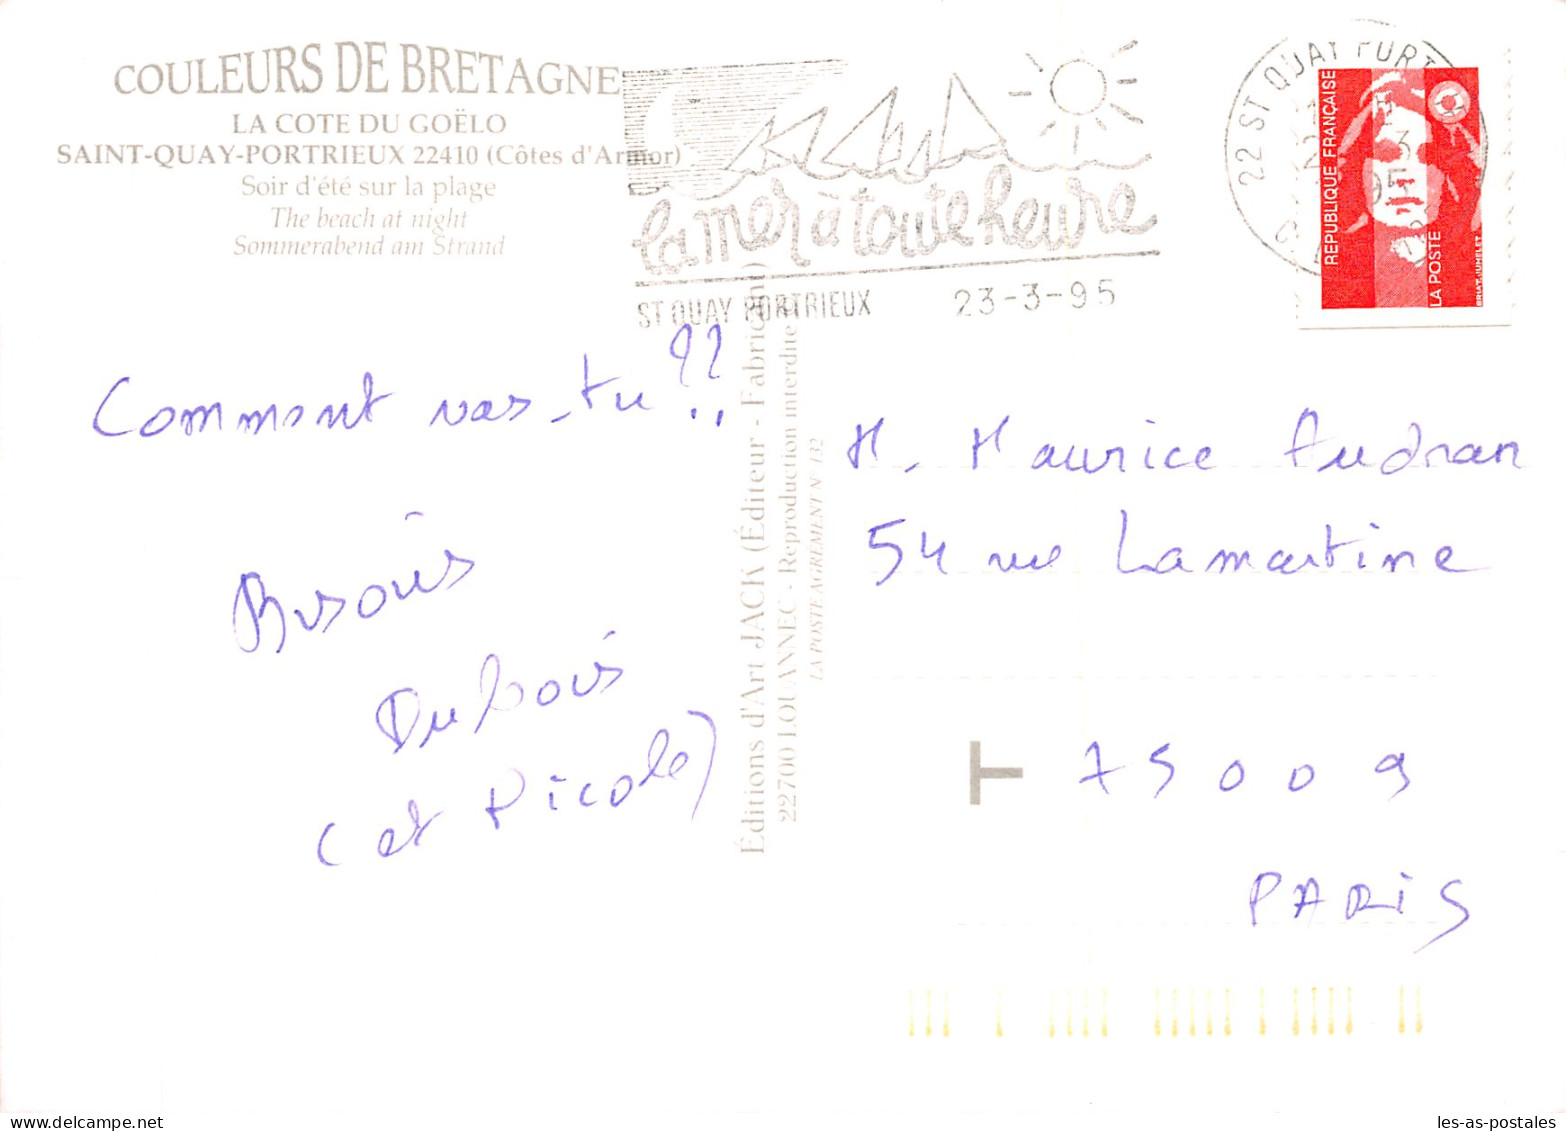 COULEURS DE BRETAGNE
LA COTE DU GOËLO
SAINT-QUAY-PORTRIEUX 22410 (Côtes d'Armor)
Soir d'été sur la plage
The beach at night
Sommerabend am Strand
la mer à toute heure
ST QUAY PORTRIEUX 23-3-95
22 ST QUAY PORT
RÉPUBLIQUE FRANÇAISE
LA POSTE
BRIAT-JUMELET
Comment vas-tu ??
Bisous
Dubois
(et Nicole)
Éditions d'Art JACK (Éditeur - Fabricant)
22700 LOUANNEC - Reproduction interdite
LA POSTE AGRÉMENT N° 132
M. Maurice Audran
54 rue Lamartine
T 75009
PARIS
les-as-postales
www.delcampe.net